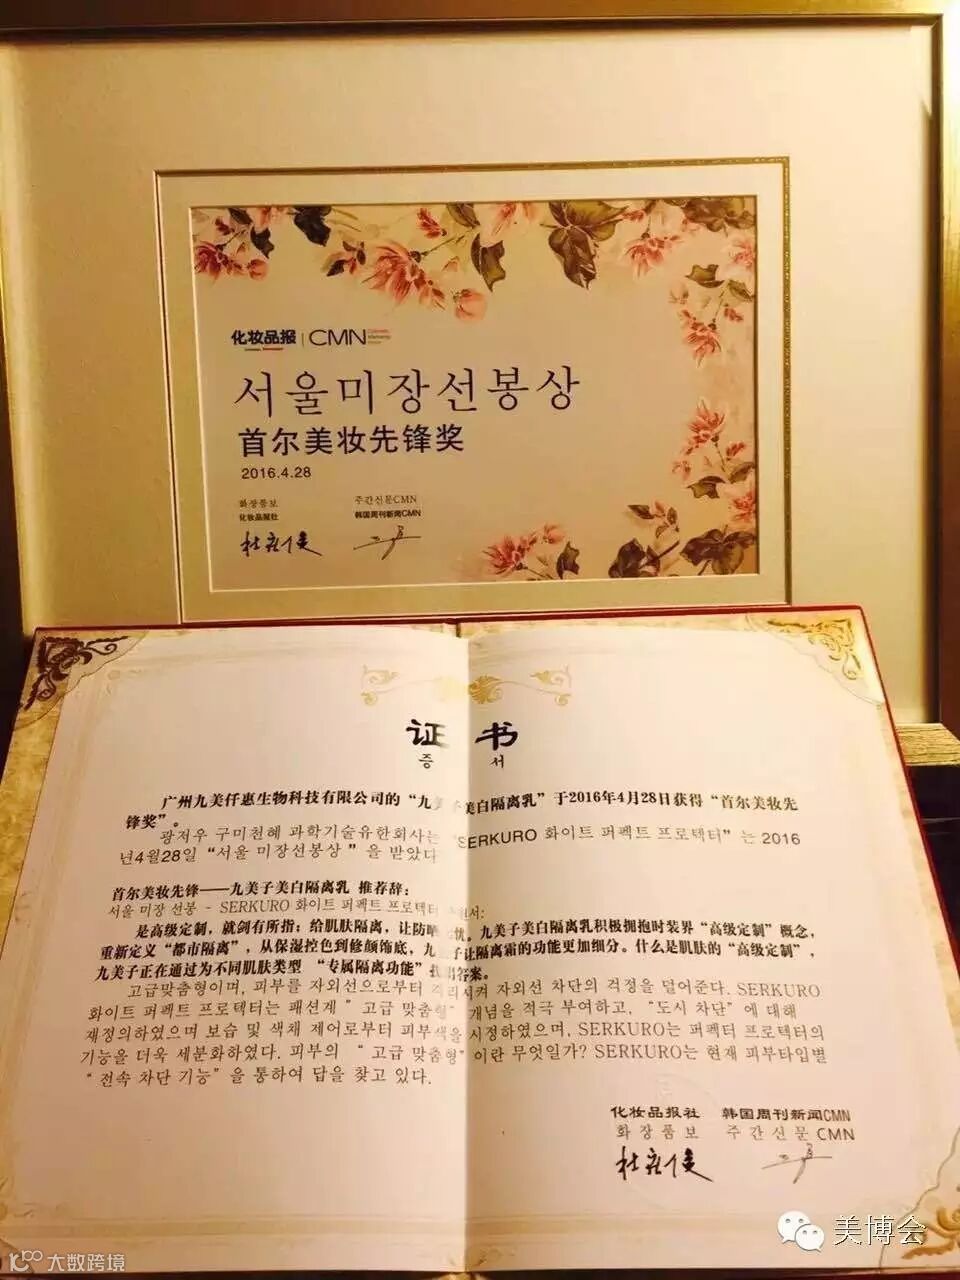 化妆品报 | CMN
서울미장선봉상
首尔美妆先锋奖
2016.4.28
화장품보 주간신문CMN
化妆品报社 韩国周刊新闻CMN
证书
증서
广州九美仟惠生物科技有限公司的“九美子美白隔离乳”于2016年4月28日获得“首尔美妆先
锋奖”。
광저우 구미천혜 과학기술유한회사는 “SERKURO 화이트 퍼펙트 프로텍터”는 2016
년4월28일 “서울 미장선봉상 ”을 받았다
首尔美妆先锋——九美子美白隔离乳 推荐辞:
서울 미장 선봉 - SERKURO 화이트 퍼펙트 프로텍터 서:
是高级定制，就剑有所指；给肌肤隔离，让防晒 忧。九美子美白隔离乳积极拥抱时装界“高级定制”概念，
重新定义“都市隔离”，从保湿控色到修颜饰底，九 子让隔离霜的功能更加细分。什么是肌肤的“高级定制”，
九美子正在通过为不同肌肤类型 “专属隔离功能” 答案。
고급맞춤형이며, 피부를 자외선으로부터 격리시켜 자외선 차단의 걱정을 덜어준다. SERKURO
화이트 퍼펙트 프로텍터는 패션계 ”고급 맞춤형” 개념을 적극 부여하고, “도시 차단”에 대해
재정의하였으며 보습 및 색채 제어로부터 피부색을 시정하였으며, SERKURO는 퍼펙터 프로텍터의
기능을 더욱 세분화하였다. 피부의 “고급 맞춤형” 이란 무엇일가? SERKURO는 현재 피부타입별
“전속 차단 기능”을 통하여 답을 찾고 있다.
化妆品报社 韩国周刊新闻CMN
화장품보 주간신문 CMN
美博会
大数跨境